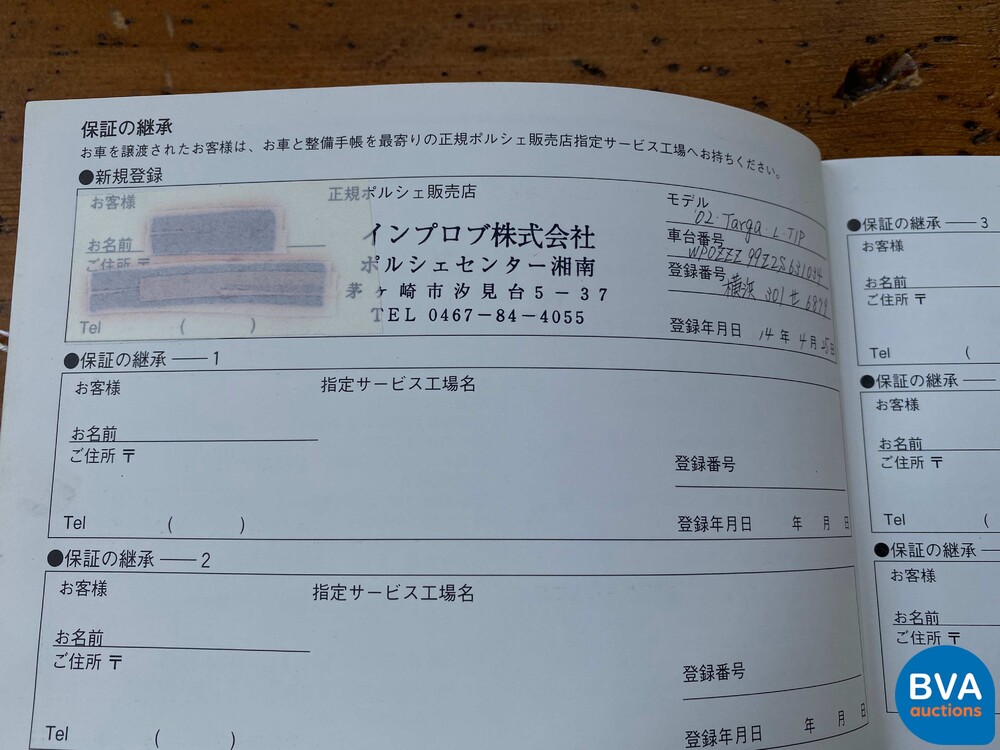 保証の継承
お車を譲渡されたお客様は、お車と整備手帳を最寄りの正規ポルシェ販売店指定サービス工場へお持ちください。
●新規登録
お客様
お名前
ご住所
Tel ( )
正規ポルシェ販売店
インプロブ株式会社
ポルシェセンター湘南
茅ヶ崎市汐見台5-37
TEL 0467-84-4055
モデル
'02・Targa・L・TIP
車台番号
WP0ZZZ99Z2S631034
登録番号
横浜 301 せ 6879
登録年月日 14年 4月 25日
●保証の継承――1
お客様
指定サービス工場名
お名前
ご住所 〒
登録番号
Tel ( )
登録年月日 年 月 日
●保証の継承――2
お客様
指定サービス工場名
お名前
ご住所 〒
登録番号
Tel ( )
登録年月日 年 月 日
●保証の継承――3
お客様
お名前
ご住所 〒
Tel (
●保証の継承――
お客様
お名前
ご住所 〒
Tel (
●保証の継承――
お客様
お名前
ご住所 〒
BVA
auctions